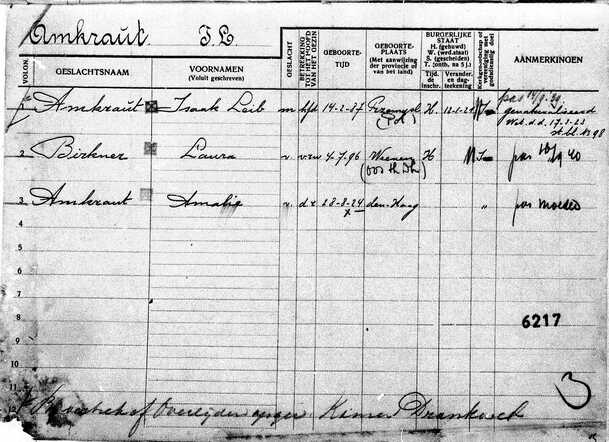 Amkraut, I.L.
VOLGN.
GESLACHTSNAAM
VOORNAMEN
(Voluit geschreven)
GESLACHT
BETREKKING TOT HET HOOFD VAN HET GEZIN
GEBOORTE-TIJD
GEBOORTE-PLAATS
(Met aanwijzing der provincie of van het land)
BURGERLIJKE STAAT
H. (gehuwd)
W. (wed.staat)
S. (gescheiden)
T. (ontb. na 5 j.)
Tijd. de inschr.
Verander. en dag-teekening
Kerkgenootschap
AANMERKINGEN
1 Amkraut Isaak Leib m hfd 14-2-87 Przemysl H 12-1-21
(Pol) pas
genaturaliseerd
Wet d.d. 17-3-23
st.bl. nr 98
2 Birkner Laura v. vrw 4-7-96 Weenen H pas 40
3 Amkraut Amalia v. dr 28-8-24 den Haag " pas moeder
4
5
6
7
8
6217
9
10
11
3
12 of Overlijden opgev. Kamer